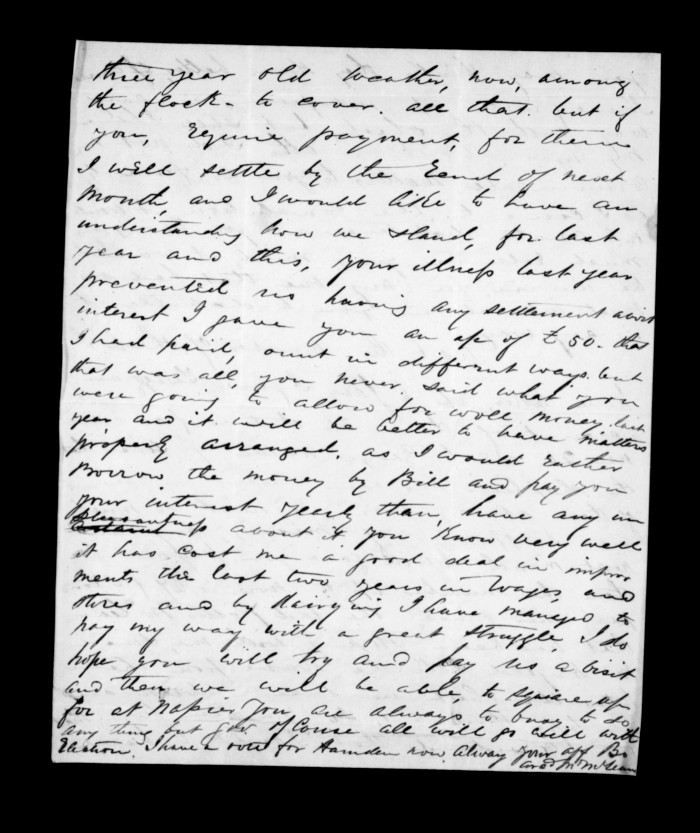 three year old weather, now, among
the flock - to cover. all that. but if
you, Equire payment, for them
I will settle by the Eend of next
Month, and I would like to have an
understanding how we stand, for last
year and this, your illness last year
prevented us having any settlement about
interest I gave you an a/c of £50 - that
I had paid, out in different ways. but
that was all, you never. said what you
were going to allow for wool money. last
year and it will be better to have matters
properly arranged, as I would Eather
Borrow the money by Bill and pay you
your interest yearly than, have any un
pleasantness about it you know very well
it has cost me a good deal in improv
ments the last two years in Wages and
stores and by dairying I have managed to
pay my way with a great struggle, I do
hope you will try and pay us a visit
and then we will be able, to square up
for at Napier you are always to busy to do
any thing but gov. of Couse all will go well with
Election. I have a vote for Hamden now. Alway your aff Bro
Arcd Jn McLean